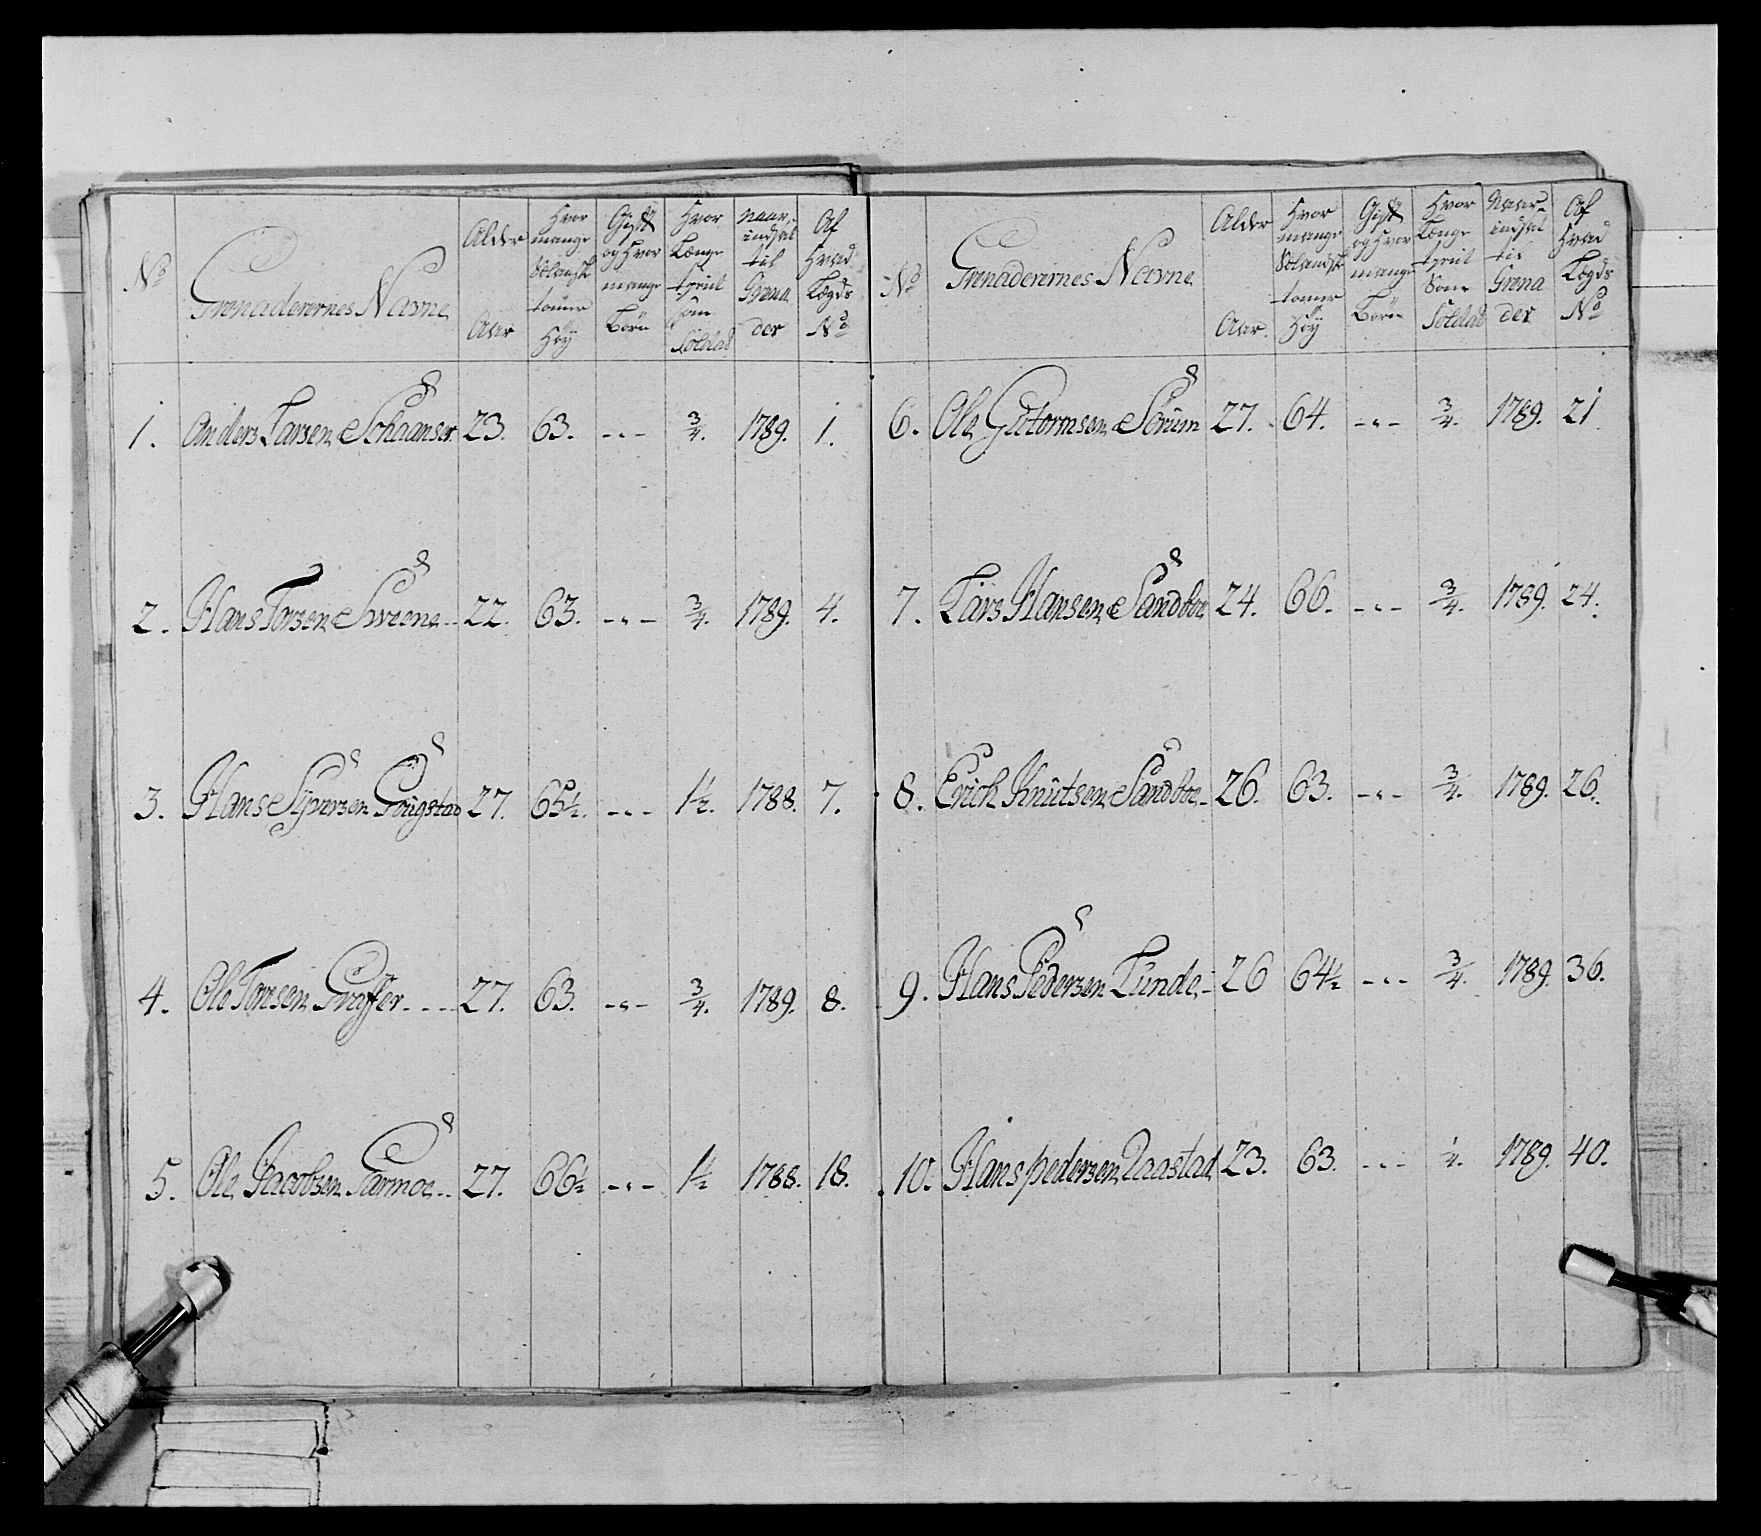 No
Grenaderernes Navne
Alder
Aar
Hvor
mange
Siælansk
tomer
Høy
Gift
og Hvor
mange
Børn
Hvor
Længe
tient
som
Soldat
Naar
indsat
til
Grena
der
Af
Hvad
Lægds
No
1. Anders Larsen 23. 63. - - - 3/4. 1789. 1.
2. Hans Torsen Sveene 22. 63. - - - 3/4. 1789. 4.
3. Hans Syversen Gougstad 27. 65 1/2. - - - 1 1/2. 1788. 7.
4. Ole Torsen Graffer 27. 63. - - - 3/4. 1789. 8.
5. Ole Jacobsen Garmoe 27. 66 1/2 - - - 1 1/2 1788. 18.
No
Grenaderernes Navne
Alder
Aar.
Hvor
mange
Siælandsk
tomer
Høy
Gift
og Hvor
mange
Børn
Hvor
Længe
tient
Som
Soldat
Naar
indsat
til
Grena
der
Af
Hvad
Lægds
No
6. Ole Gutormsen Sørum 27. 64. - - - 3/4. 1789. 21
7. Lars Hansen Sandboe 24. 66. - - - 3/4. 1789. 24.
8. Erich Knutsen Sandboe 26. 63. - - - 3/4. 1789. 26.
9. Hans Pedersen Lunde 26 64 1/2 - - - 3/4. 1789. 36.
10. Hans pedersen Aastad 23. 63. - - - 1/4. 1789. 40.